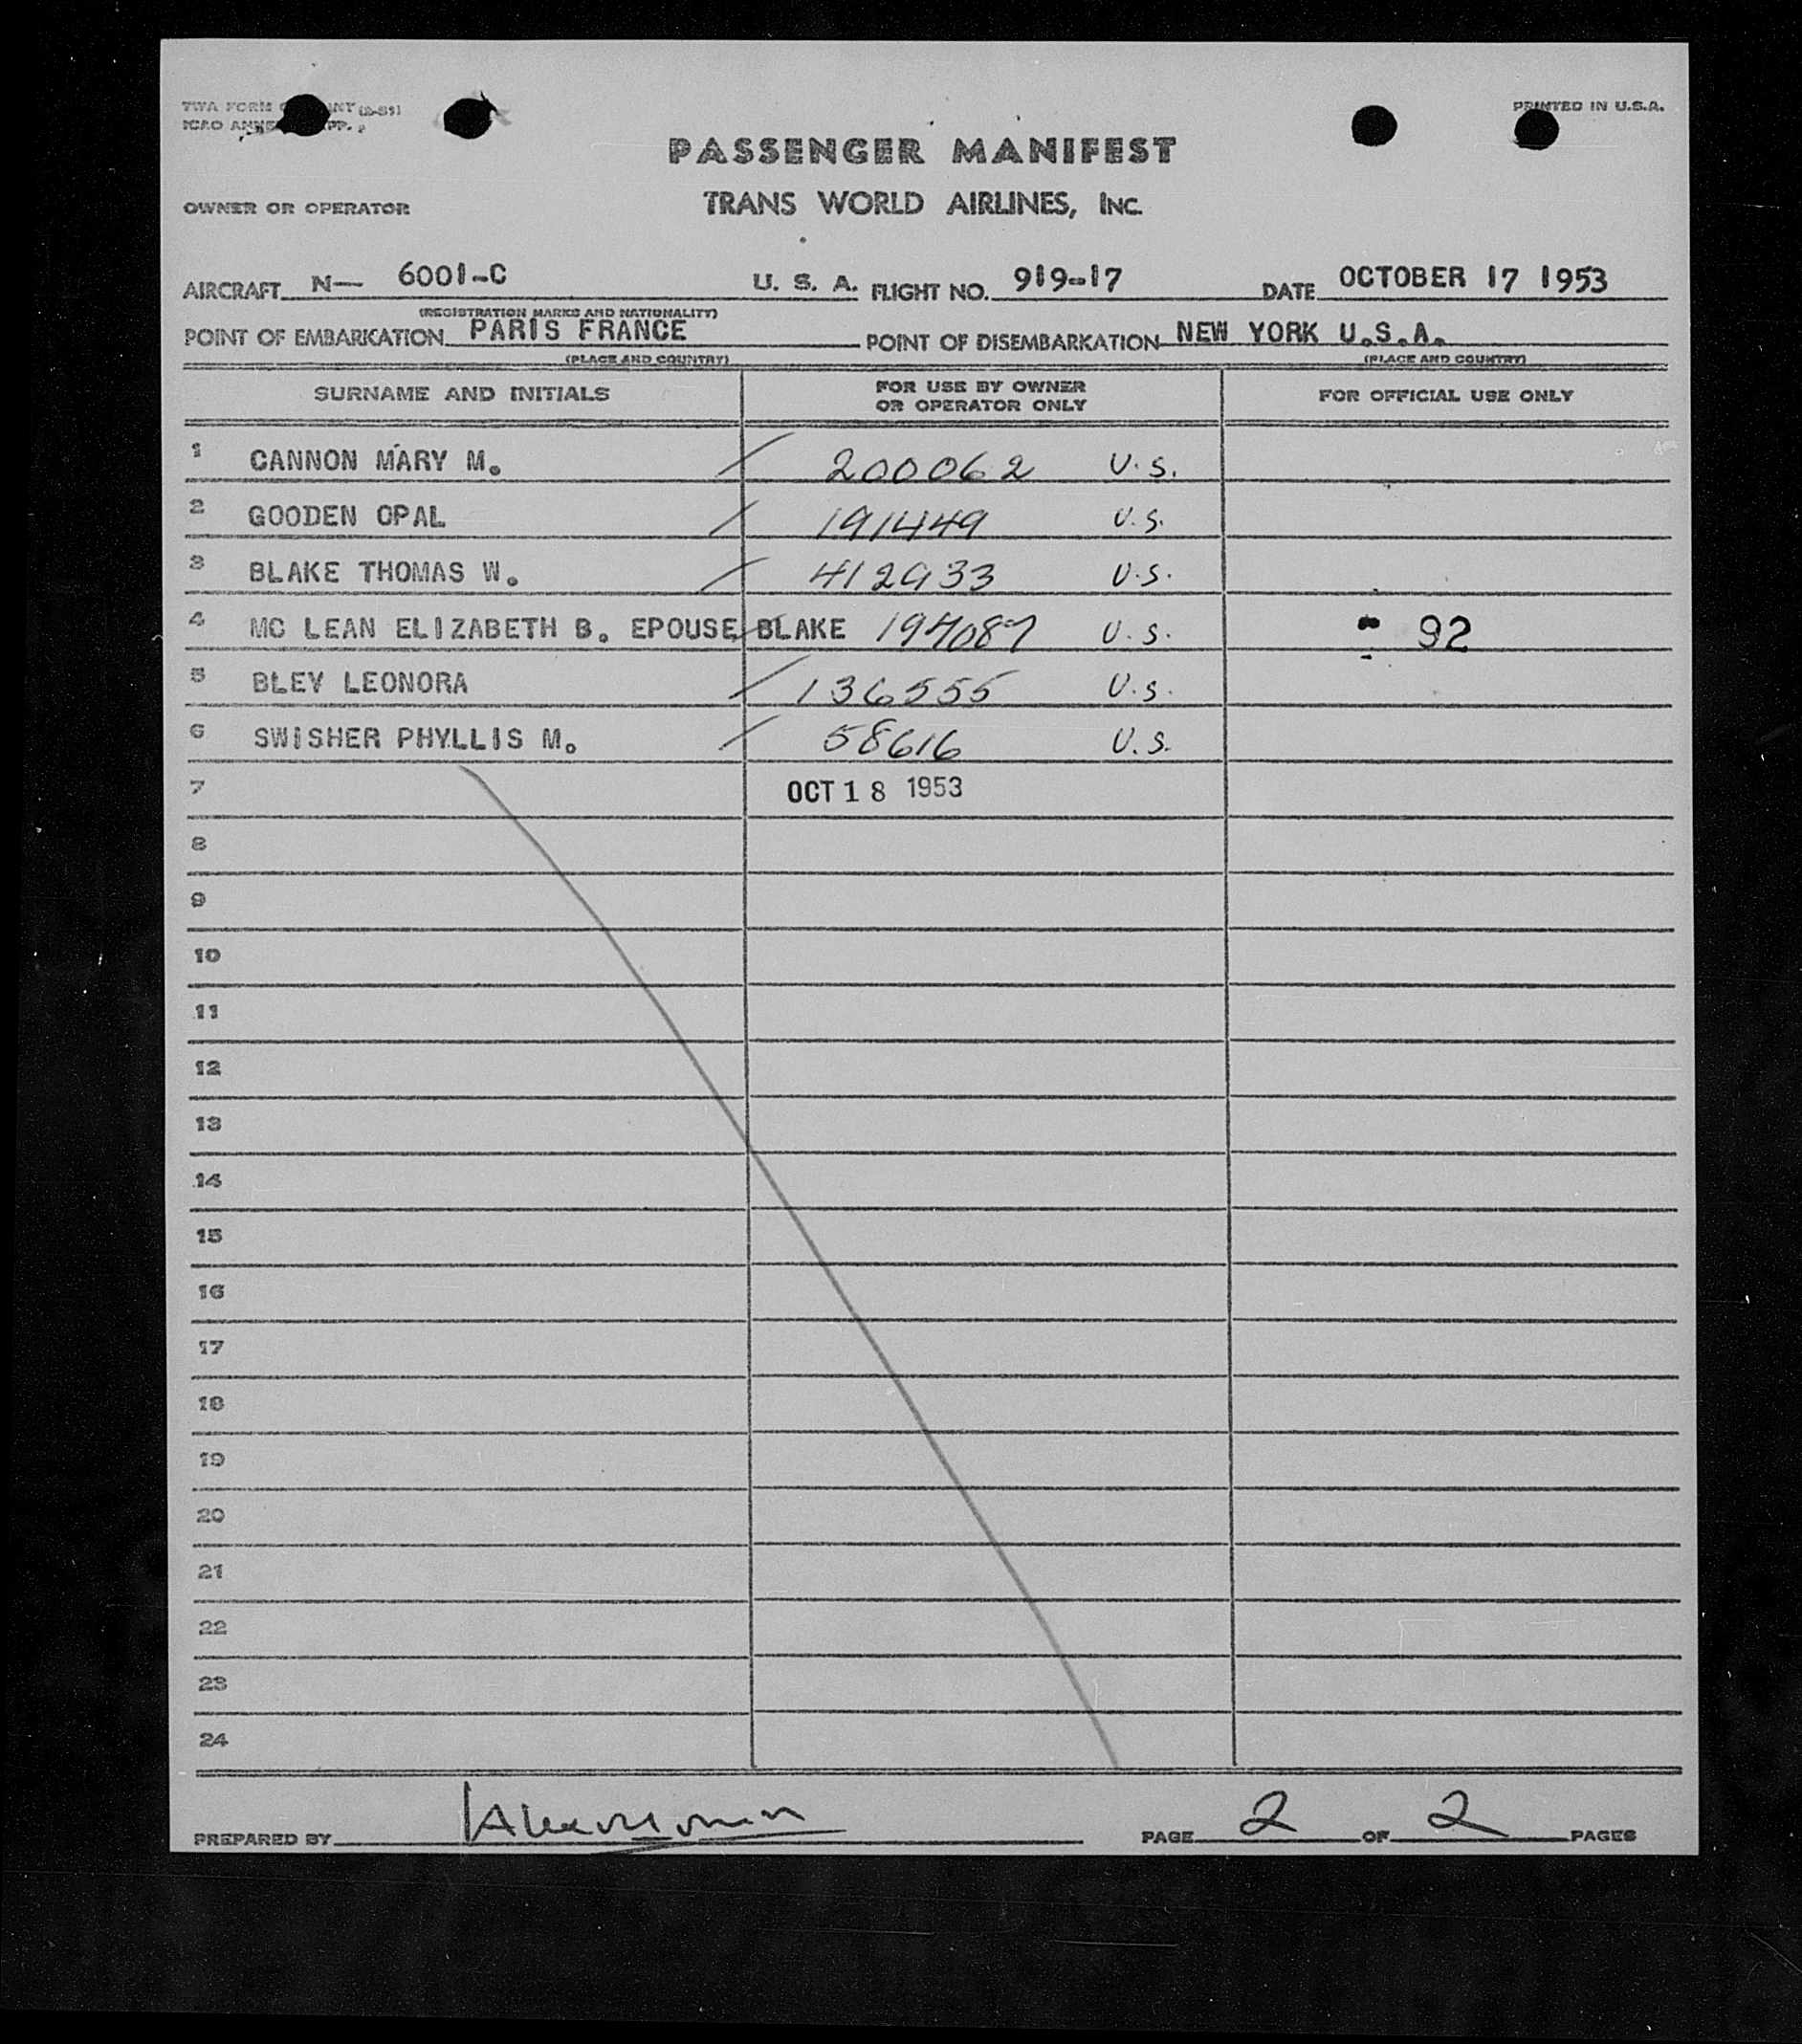 (2-51)
PRINTED IN U.S.A.
PASSENGER MANIFEST
OWNER OR OPERATOR TRANS WORLD AIRLINES, INC.
AIRCRAFT N— 6001-C U. S. A. FLIGHT NO. 919-17 DATE OCTOBER 17 1953
(REGISTRATION MARKS AND NATIONALITY)
POINT OF EMBARKATION PARIS FRANCE POINT OF DISEMBARKATION NEW YORK U.S.A.
(PLACE AND COUNTRY) (PLACE AND COUNTRY)
SURNAME AND INITIALS FOR USE BY OWNER OR OPERATOR ONLY FOR OFFICIAL USE ONLY
1 CANNON MARY M. / 200062 U.S.
2 GOODEN OPAL / 191449 U.S.
3 BLAKE THOMAS W. / 412933 U.S.
4 MC LEAN ELIZABETH B. EPOUSE BLAKE U.S. 92
5 BLEY LEONORA / 136555 U.S.
6 SWISHER PHYLLIS M. / 58616 U.S.
7 OCT 18 1953
8
9
10
11
12
13
14
15
16
17
18
19
20
21
22
23
24
PREPARED BY PAGE 2 OF 2 PAGES